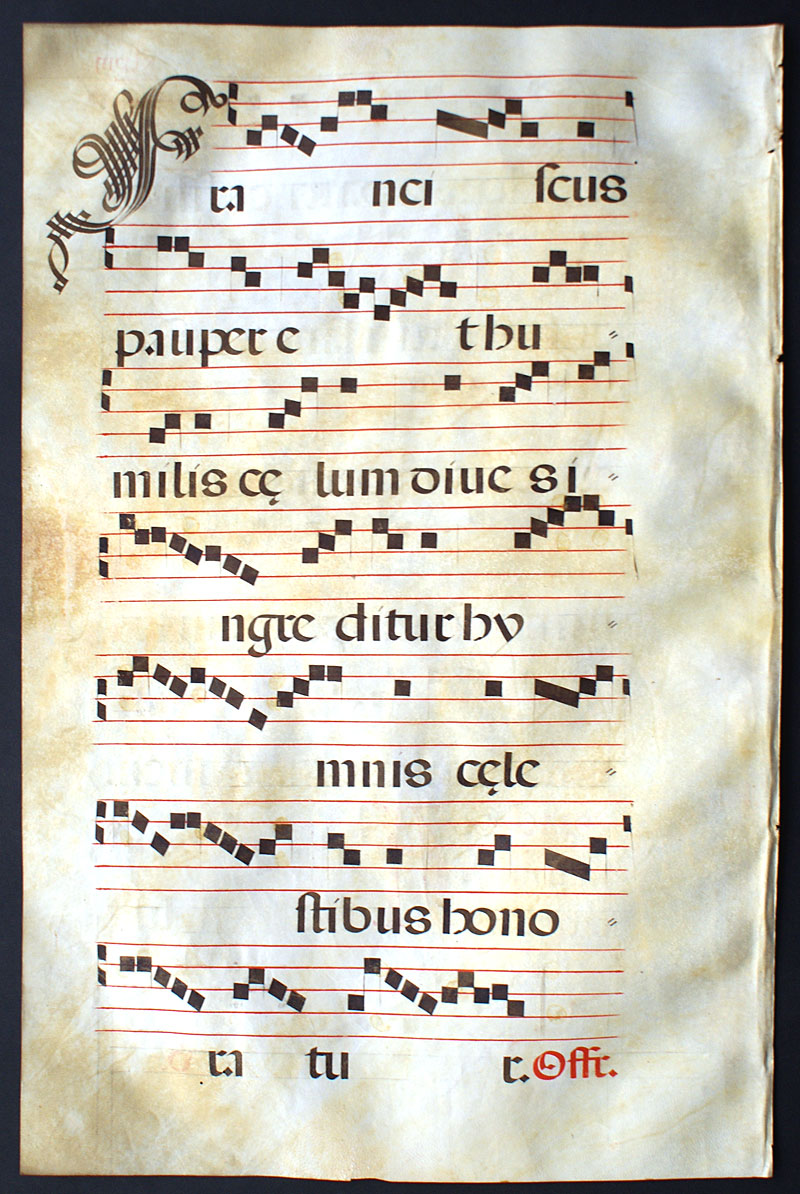 Fra nci scus
pauper e t hu
milis cę lum diue s i
ngre ditur hy
mnis cęle
stibus hono
ra tu r. Offr.